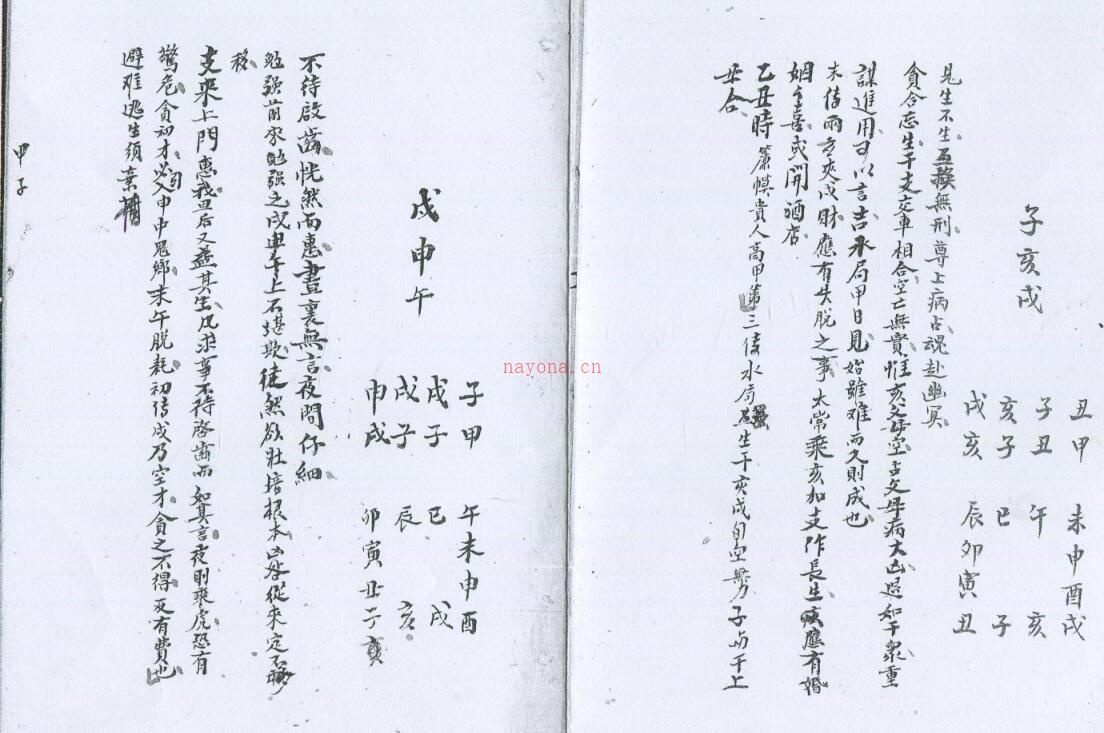 子亥戌
丑甲
子丑
亥子
戌亥
未申酉戌
午 亥
巳 子
辰卯寅丑
見生不生 無刑尊上病占魂赴幽冥
貪合忘生干支 車相合空亡無實惟亥 母空占父母病大凶 知干眾重
謀進用日以言吉 局甲日見 始雖难而久則成也
末傳兩 夾戌財應有失脫之事太常乘亥加支作長生 應有婚
姻 喜或開酒店
乙丑時簾幙貴人高甲第三傳水局 生干亥戌旬空 子 干上
丑合
戌申午
子甲
戌子
戌子
申戌
午未申酉
巳 戌
辰 亥
卯寅丑子
不待啟齒恍然而惠晝裏無言夜間仔細
勉强前求勉强之戌 上不堪欺徒然欲壯培根本凶咎從來定不
移
支來上門惠我日后又益其生凡求事不待啓齒而如其言夜則乘虎恐有
驚危貪初才 申申鬼鄉末午脫耗初传戌乃空才貪之不得又有費也
避难逃生須棄旧
甲子
nayona.cn